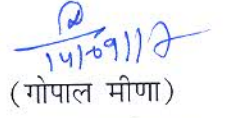 14/09/17
(गोपाल मीणा)